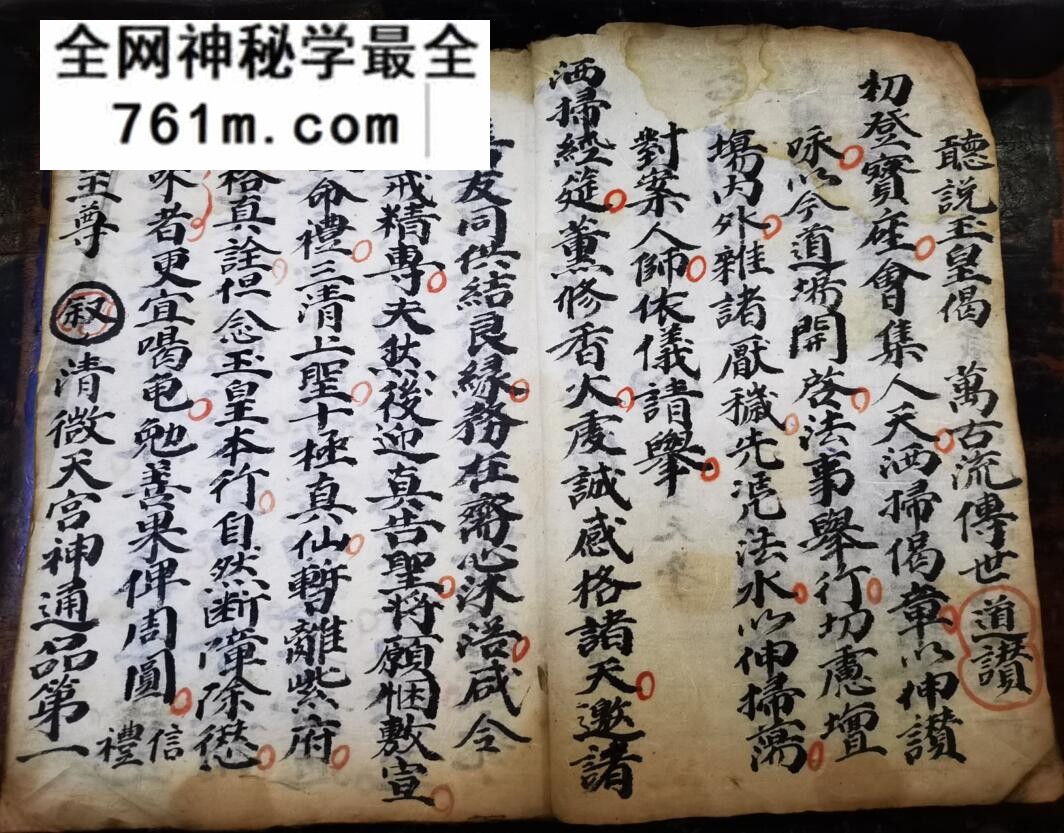 全网神秘学最全
761m.com
聽説玉皇偈 萬古流傳世 道讚
初登寶座會集人天洒掃偈章以伸讃
咏以今道場開啓法事舉行切慮壇
塲内外雜諸厭穢先凴法水以伸掃蕩
對案人師依儀請舉
洒掃經筵薰修香火虔誠感格諸天邀諸
友同供結良緣務在齋心沐浴咸令
戒精專夫然後迎真告聖將願悃敷宣
命禮三清上聖十極真仙暫離紫府
格真詮但念玉皇本行自然断障除愆
者更宜喝黽勉善果俾周圓 信禮
至尊 叔 清微天宮神通品第一